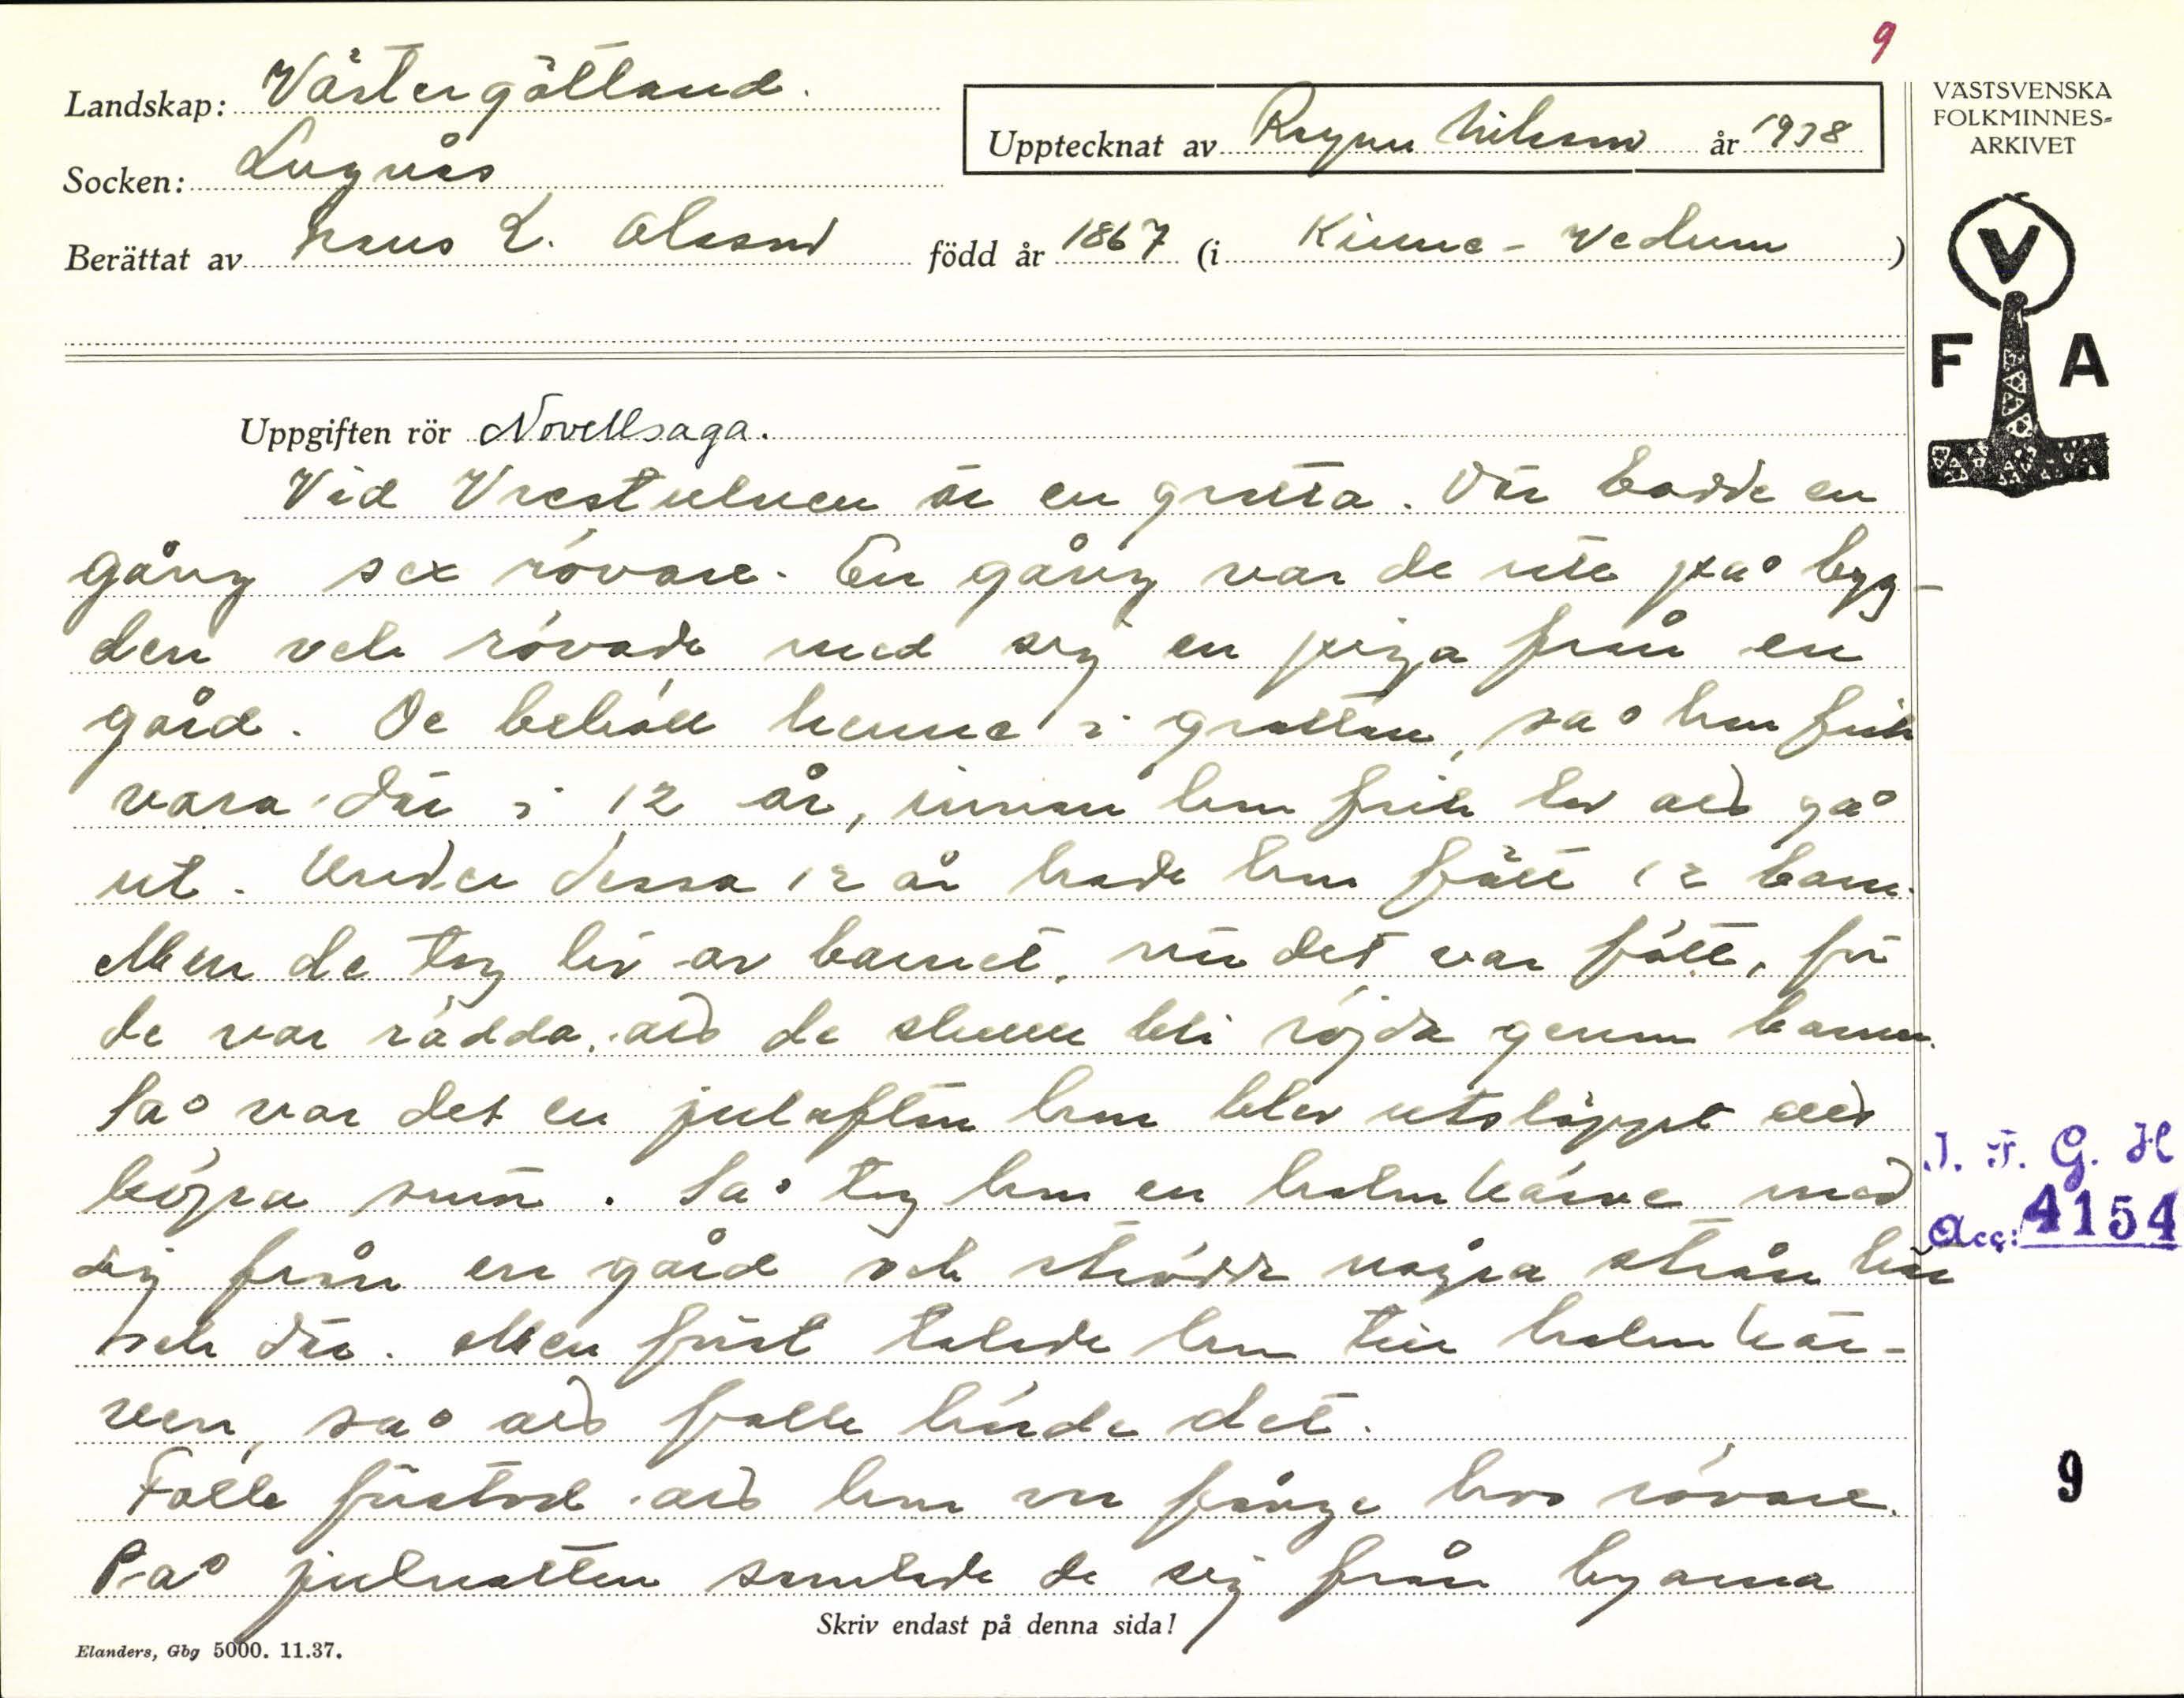 9
Landskap: Västergötland.
Upptecknat av Ragnar Nilsson år 1938
VÄSTSVENSKA
FOLKMINNES-
ARKIVET
Socken: Lugnås
Berättat av Hans L. Olsson född år 1867 (i Kinne-Vedum)
V
F A
Uppgiften rör Novellsaga.
Vid Vrestulven är en grotta. Där bodde en
gång sex rövare. En gång var de ute på byg-
den och rövade med sig en piga från en
gård. De behöll henne i grottan, så hon fick
vara där i 12 år, innan hon fick lov att gå
ut. Under dessa 12 år hade hon fått 12 barn.
Men de tog liv av barnet, när det var fött, för
de var rädda, att de skulle bli röjda genom barnen.
Så var det en julafton hon blev utsläppt att
köpa smör. Så tog hon en halmkärve med
sig från en gård och strödde några strån här
och där. Men först talade hon till halmkär-
ven, så att folk hörde det.
Folk förstod, att hon var fånge hos rövare.
På julnatten samlade de sig från byarna
I. F. G. H
Acc: 4154
9
Skriv endast på denna sida!
Elanders, Gbg 5000. 11.37.